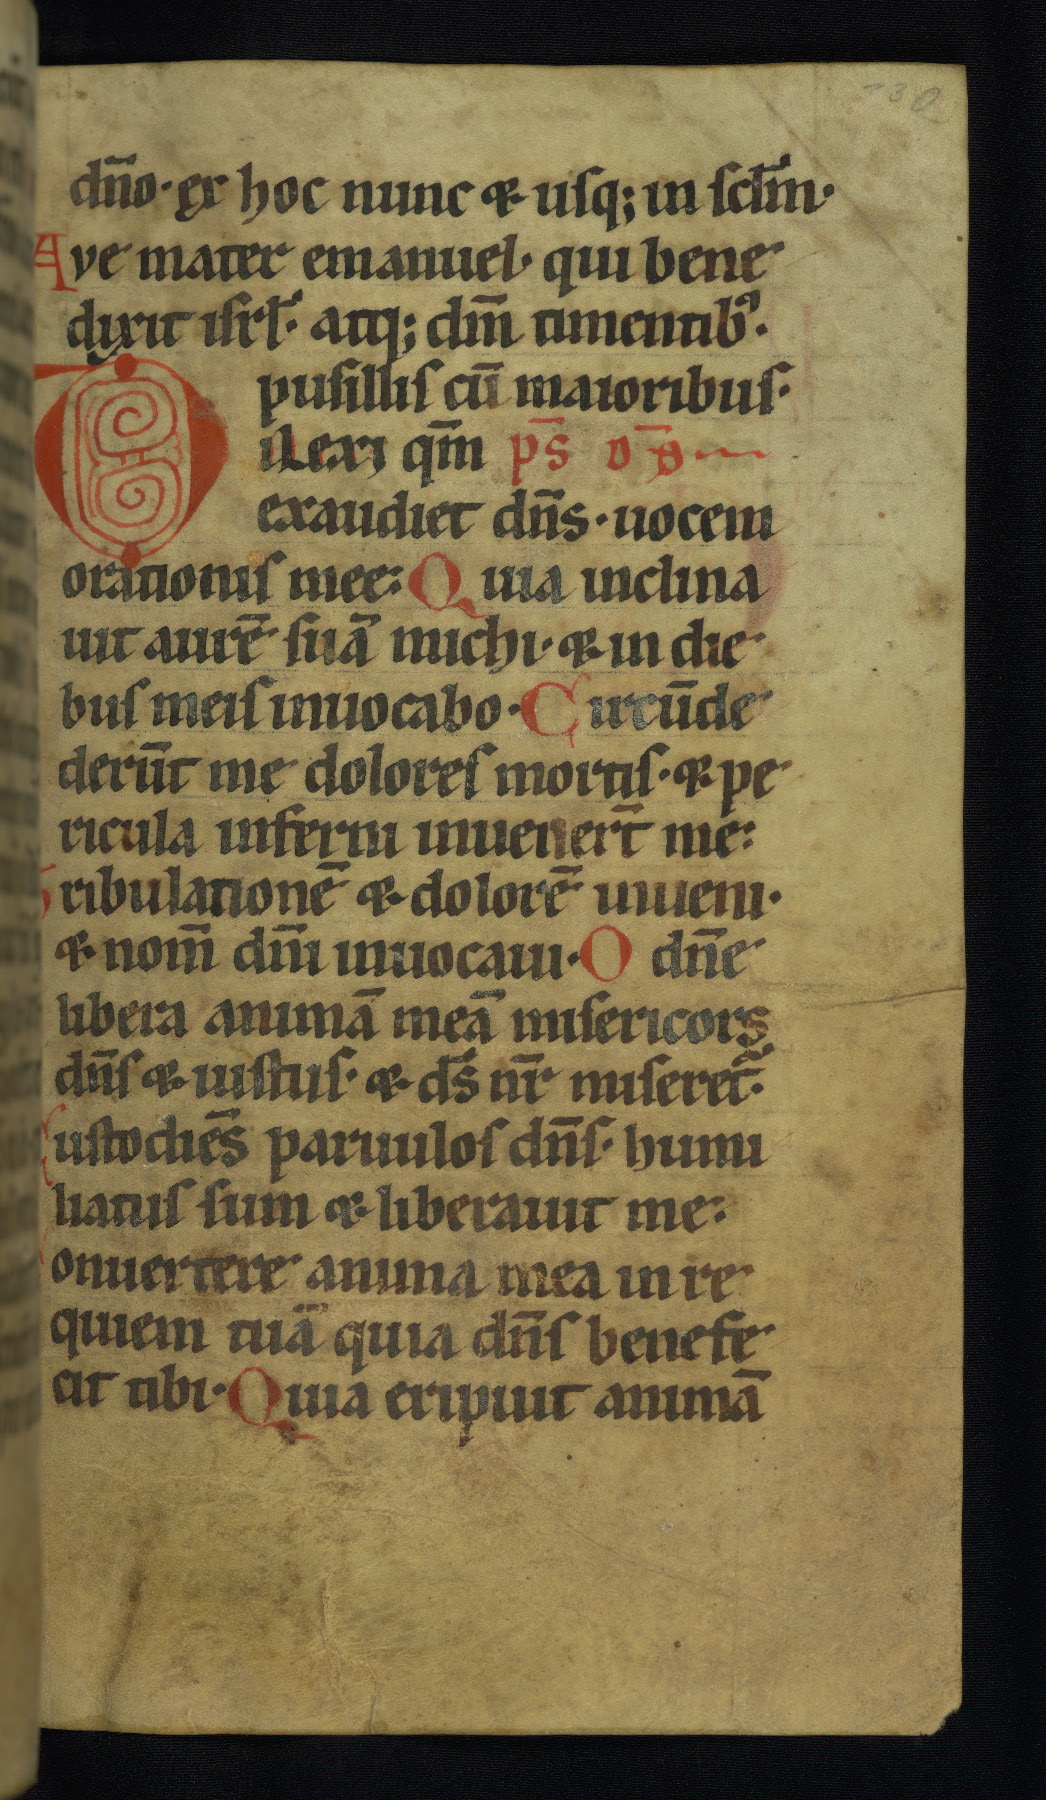 dn̄o · ex hoc nunc ⁊ usq; in sclm̄ ·
Ave mater emanuel · qui bene
dixit isrl̄ · atq; dm̄ timentibꝰ ·
pusillis cū maioribus ·
Dilexi qm̄ ps̄
exaudiet dn̄s · uocem
orationis mee : Quia inclina
uit aurē suā michi · ⁊ in die
bus meis inuocabo · Circūde
derūt me dolores mortis · ⁊ pe
ricula inferni inuenert̄ me :
Tribulationē ⁊ dolorē inueni ·
⁊ nom̄ dn̄i inuocaui · O dn̄e
libera animā meā misericors
dn̄s ⁊ iustus · ⁊ ds̄ nr̄ miseret᷑ ·
Custodiēs paruulos dn̄s · humi
liatus sum ⁊ liberauit me :
Conuertere anima mea in re
quiem tuā quia dn̄s benefe
cit tibi · Quia eripuit animā